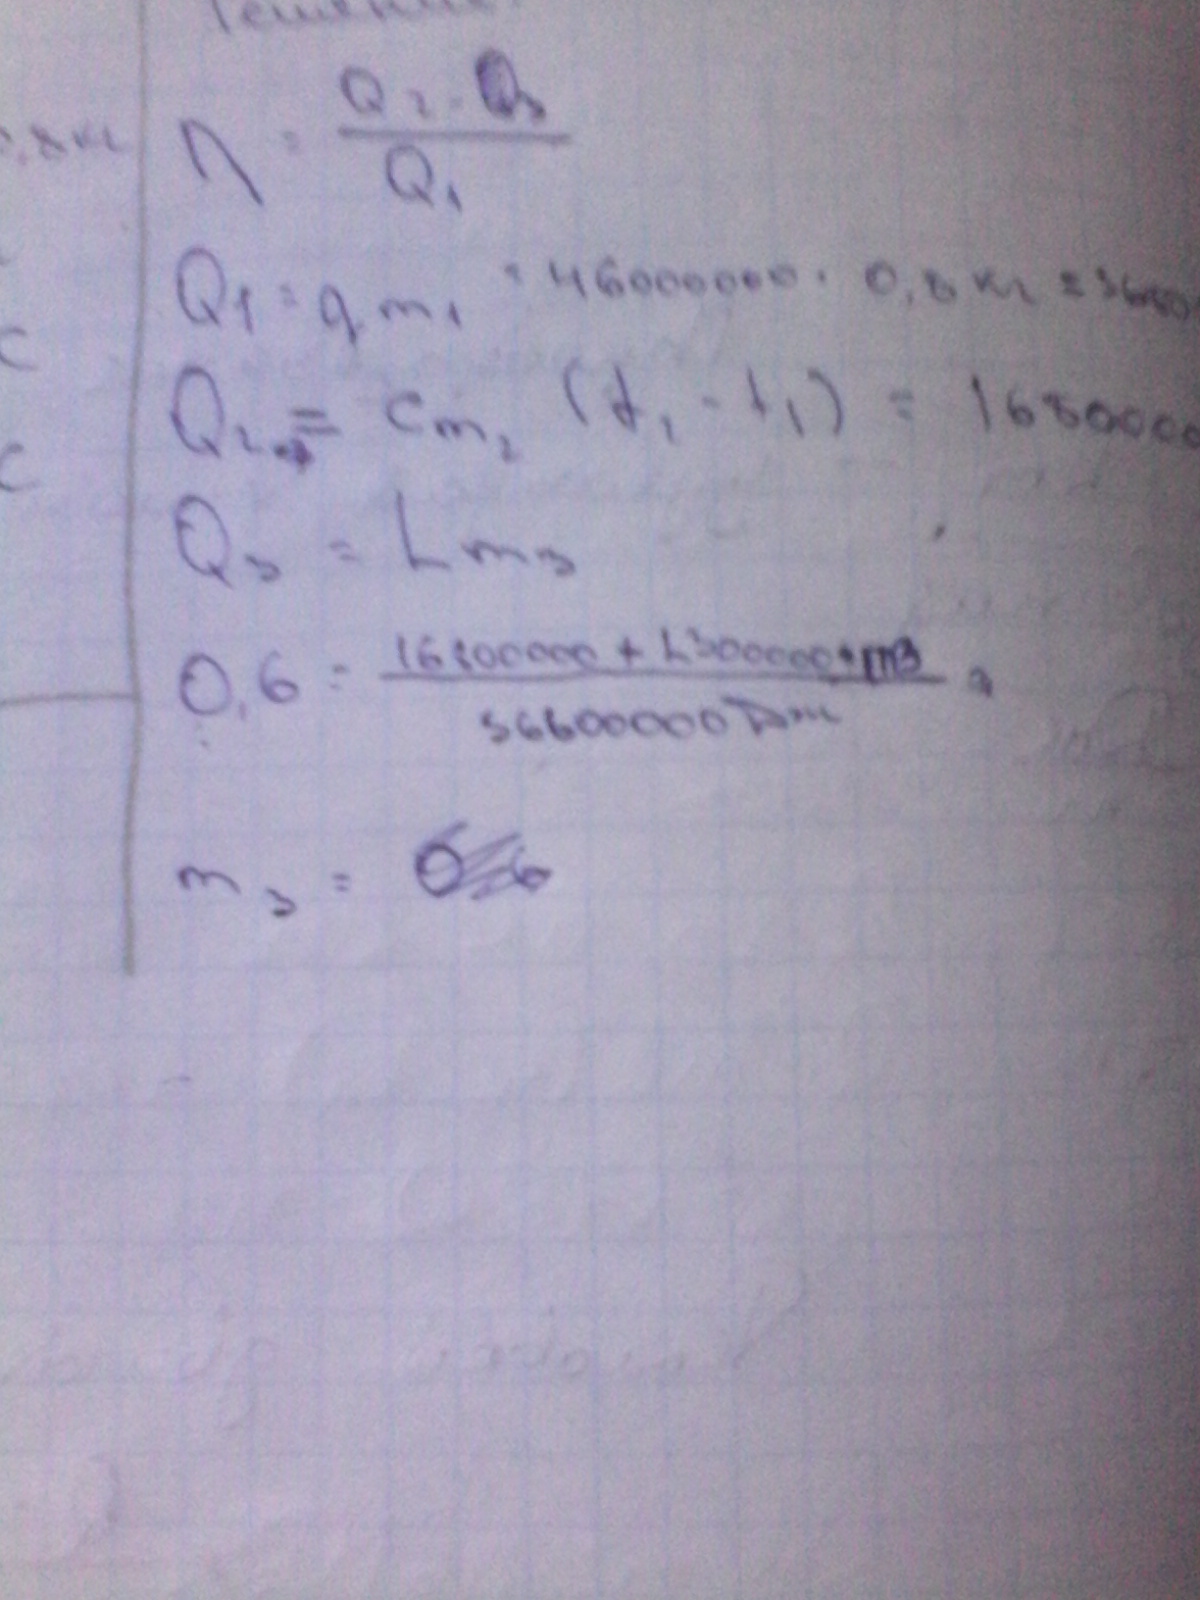 Решение:
η = Q2 - Q3 / Q1
Q1 = q m1 = 46000000 · 0,8 кг = 3680
Q2 = c m2 (t2 - t1) = 1680000
Q3 = L m3
0,6 = 16800000 + 2300000 · m3 / 36800000 Дж =
m3 =